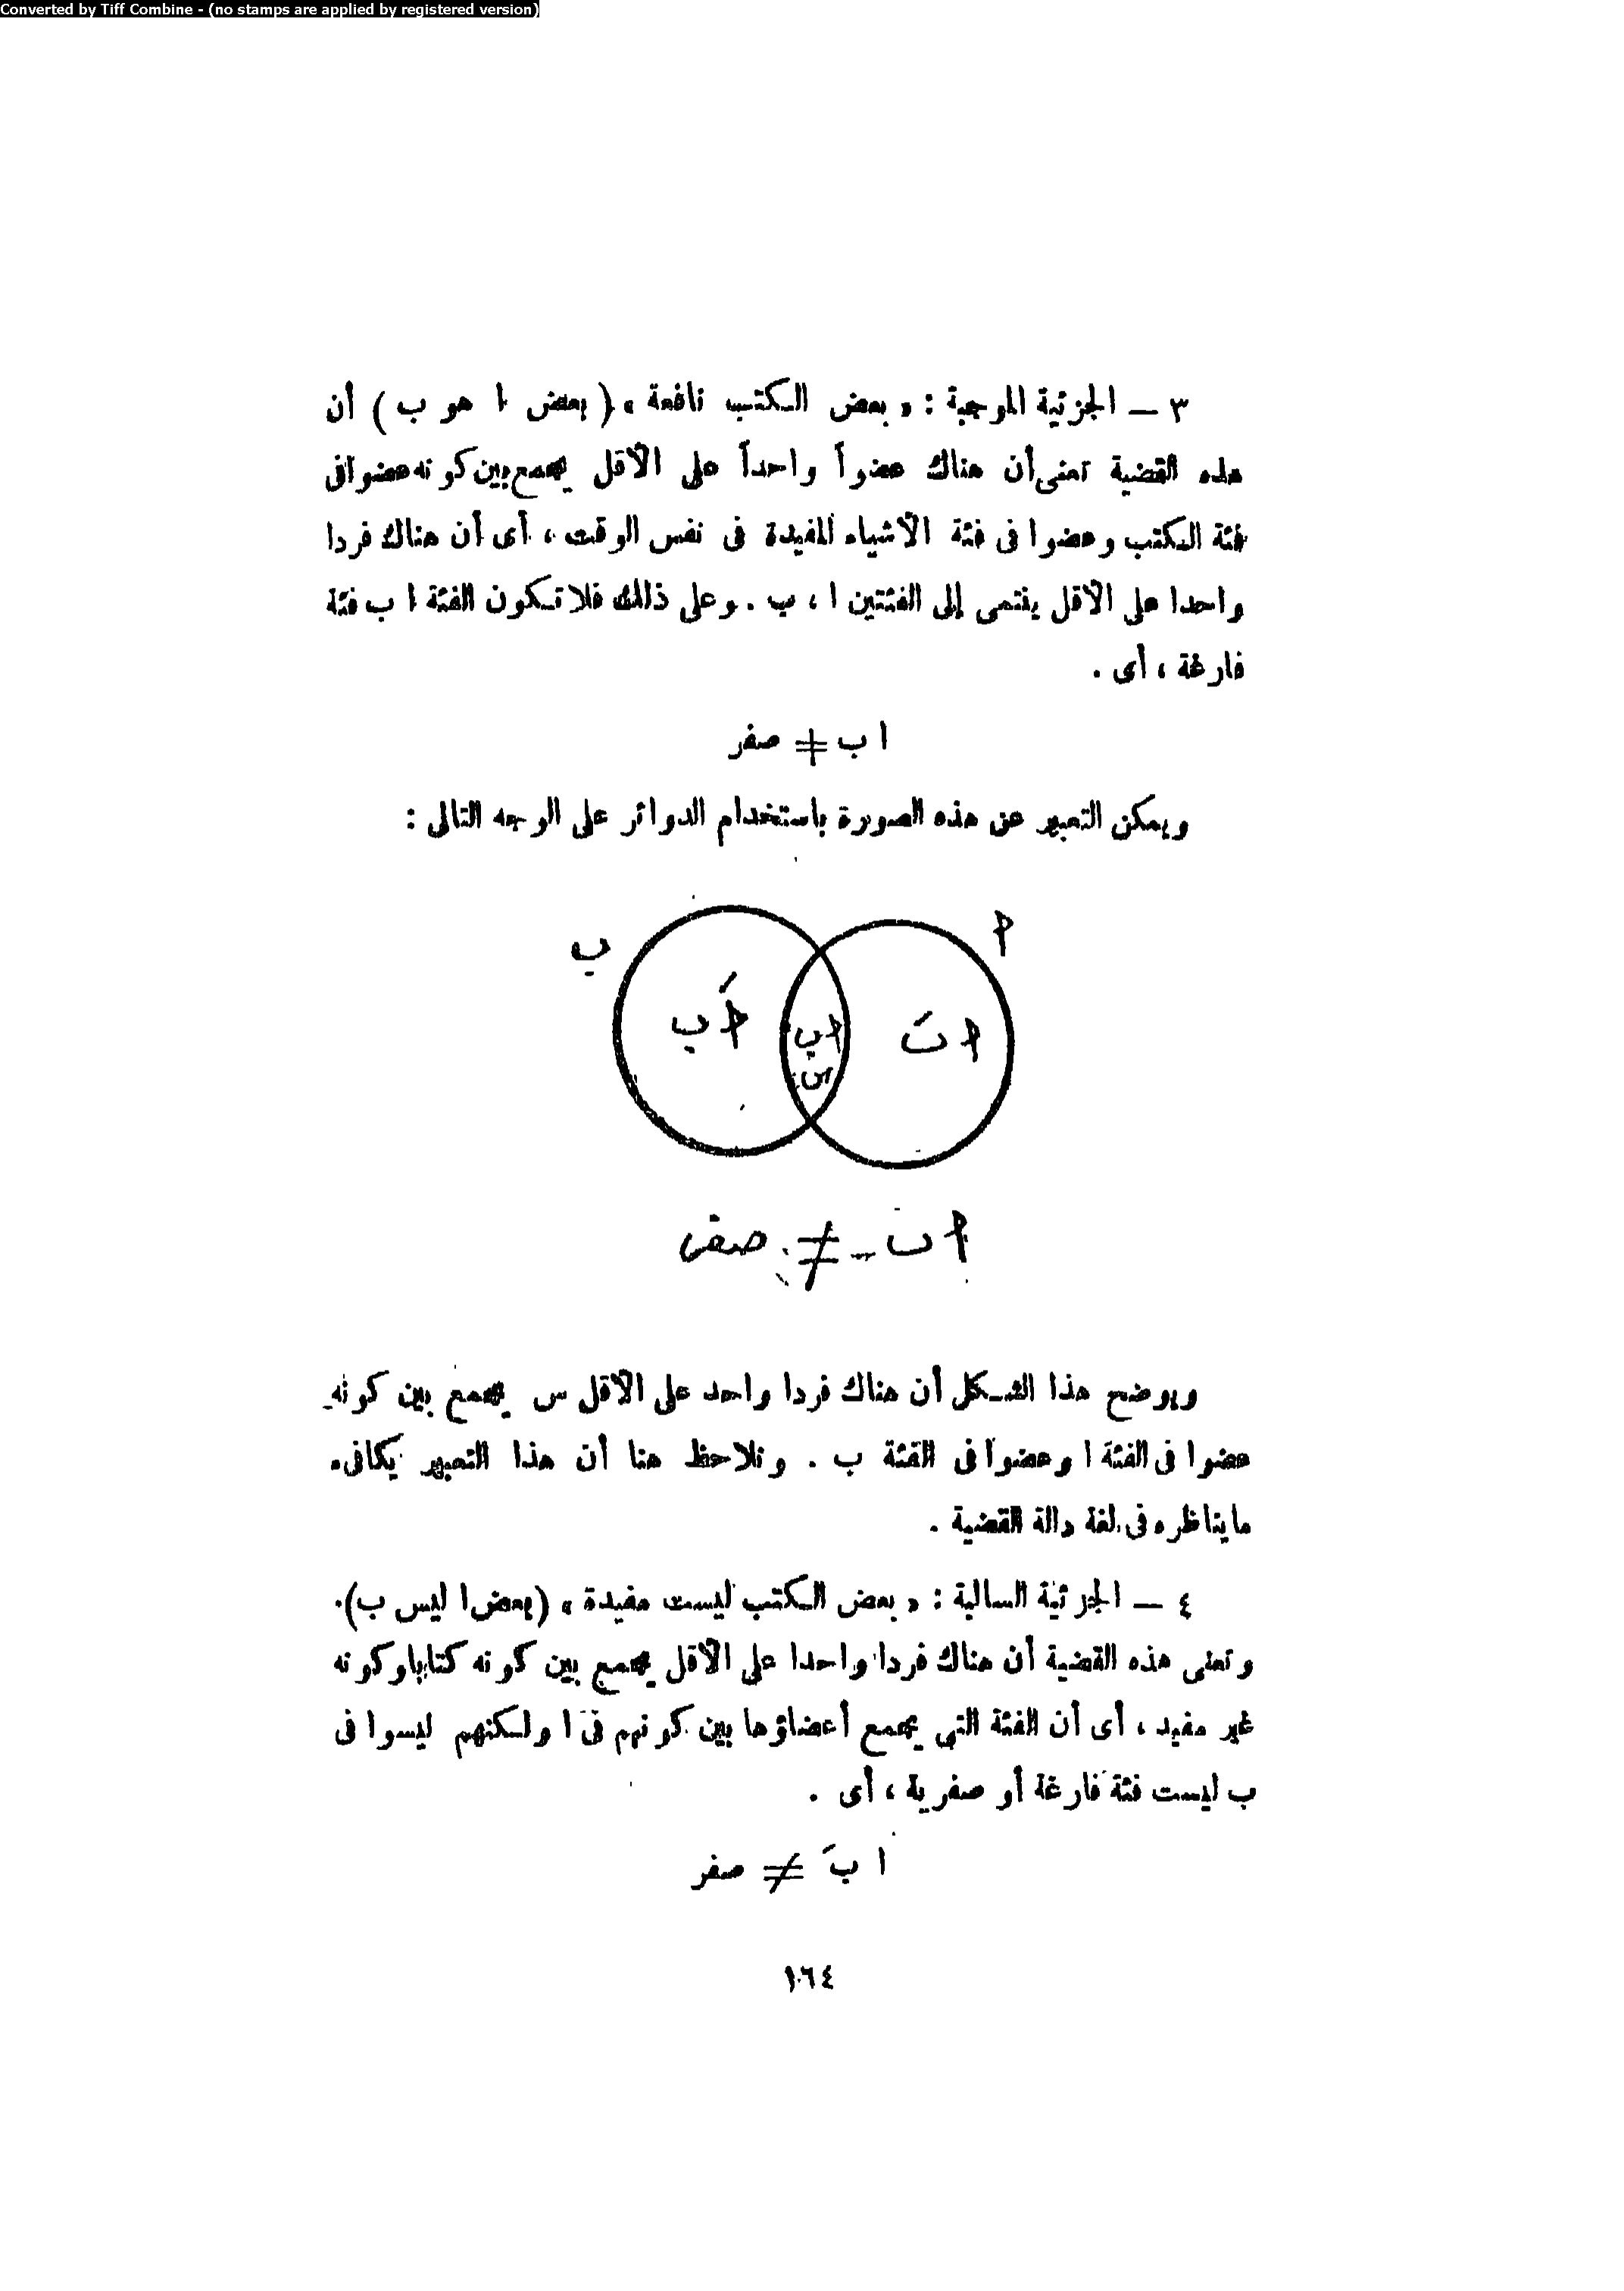 Converted by Tiff Combine - (no stamps are applied by registered version)
٣ — الجزئية الموجبة : « بعض الكتب نافعة » ( بعض ا هو ب ) أن
هذه القضية تعنى أن هناك عضواً واحداً على الأقل يجمع بين كونه عضوا فى
فئة الكتب وعضوا فى فئة الأشياء المفيدة فى نفس الوقت ، أى أن هناك فردا
واحدا على الأقل ينتمى إلى الفئتين ا ، ب . وعلى ذلك فلا تكون الفئة ا ب فئة
فارغة ، أى .
ا ب ≠ صفر
ويمكن التعبير عن هذه الصورة باستخدام الدوائر على الوجه التالى :
ب
أ
أَ ب
أ ب
س
أ بَ
أ ب ≠ صفر
ويوضح هذا الشكل أن هناك فردا واحد على الأقل س يجمع بين كونه
عضوا فى الفئة ا وعضواً فى الفئة ب . ونلاحظ هنا أن هذا التعبير يكافىء
ما يناظره فى لغة دالة القضية .
٤ — الجزئية السالبة : « بعض الكتب ليست مفيدة » (بعض ا ليس ب).
وتعنى هذه القضية أن هناك فردا واحدا على الأقل يجمع بين كونه كتابا وكونه
غير مفيد ، أى أن الفئة التى يجمع أعضاؤها بين كونهم فى ا ولكنهم ليسوا فى
ب ليست فئة فارغة أو صفرية ، أى .
ا بَ ≠ صفر
١٦٤